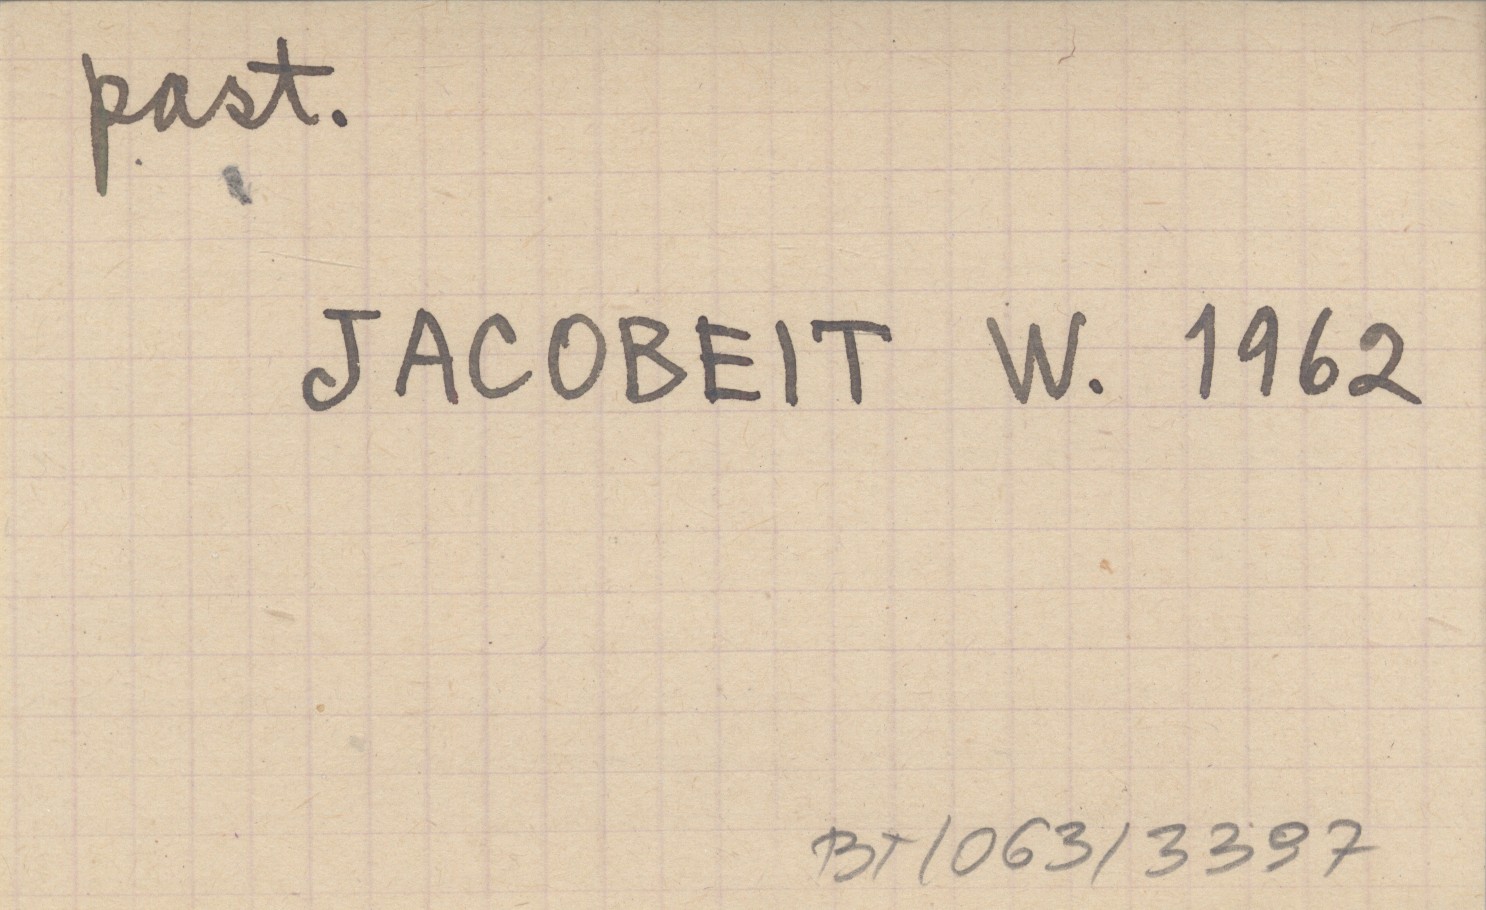 past.
JACOBEIT W. 1962
BT/063/3397